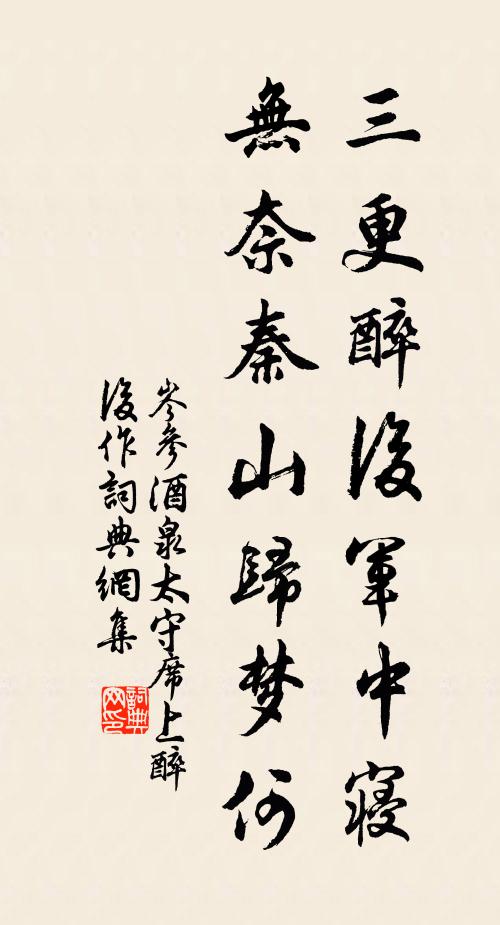 三更醉後軍中寢
無奈秦山歸梦何
岑參酒泉太守席上醉
後作詞典網集
詞典網印